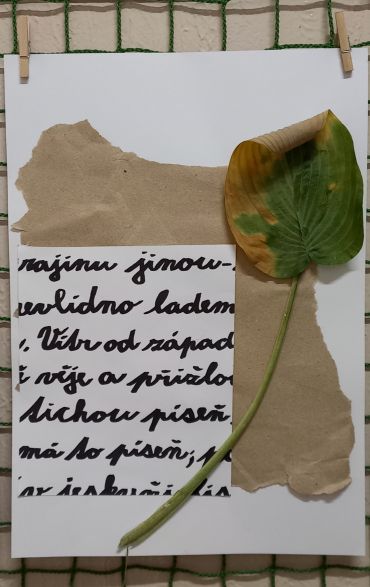 rajinu jinou-
nevlidno ladem
. Vítr od západ
věje a přižlo
tichou píseň
má to píseň; p
v jeskyni lis